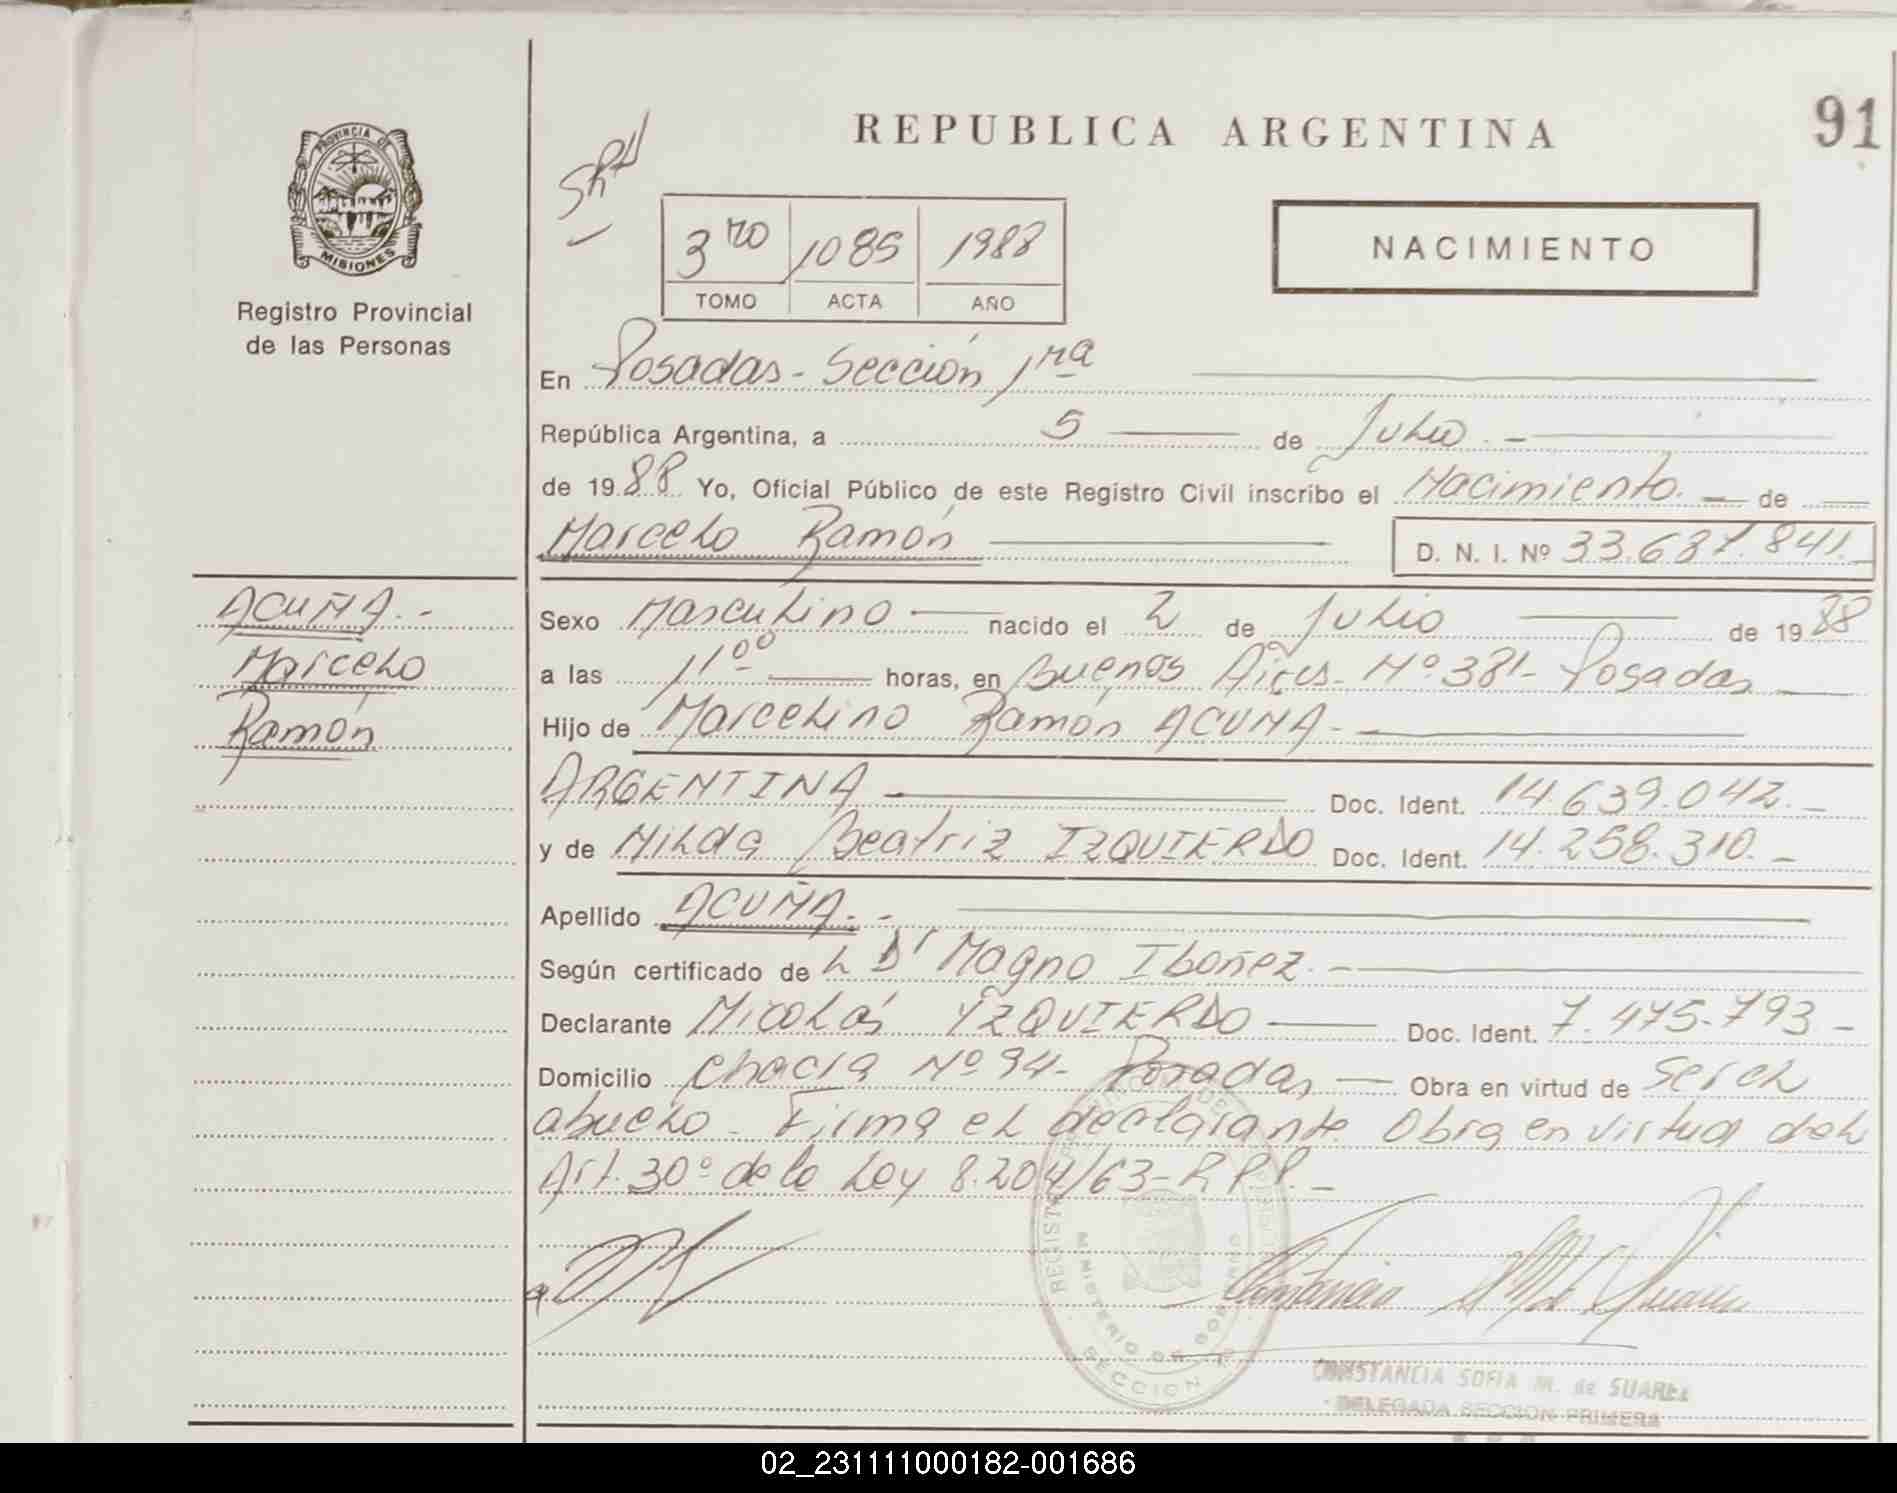 91
REPUBLICA ARGENTINA
PROVINCIA DE
MISIONES
Registro Provincial
de las Personas
3ro 1085 1988
TOMO ACTA AÑO
NACIMIENTO
En Posadas - Sección 1ra
República Argentina, a 5 de Julio. -
de 1988 Yo, Oficial Público de este Registro Civil inscribo el Nacimiento. - de
Marcelo Ramón D. N. I. Nº 33.637.841. -
ACUÑA. -
Marcelo
Ramón
Sexo Masculino nacido el 2 de Julio de 1988
a las 11⁰⁰ horas, en Buenos Aires - Nº 381 - Posadas
Hijo de Marcelino Ramón ACUÑA -
ARGENTINA - Doc. Ident. 14.639.042. -
y de Nilda Beatriz IZQUIERDO Doc. Ident. 14.258.310. -
Apellido ACUÑA. -
Según certificado de L Dr Magno Iboñez. -
Declarante Nicolás YZQUIERDO Doc. Ident. 7.475.793 -
Domicilio Chacra Nº 94 - Posadas, - Obra en virtud de Ser el
abuelo - Firma el declarante. Obra en virtud del
Art. 30º de la Ley 8.204/63 - R.P.P. -
MINISTERIO DE GOBIERNO
SECCION
CONSTANCIA SOFIA M. de SUAREZ
DELEGADA SECCION PRIMERA
02_231111000182-001686